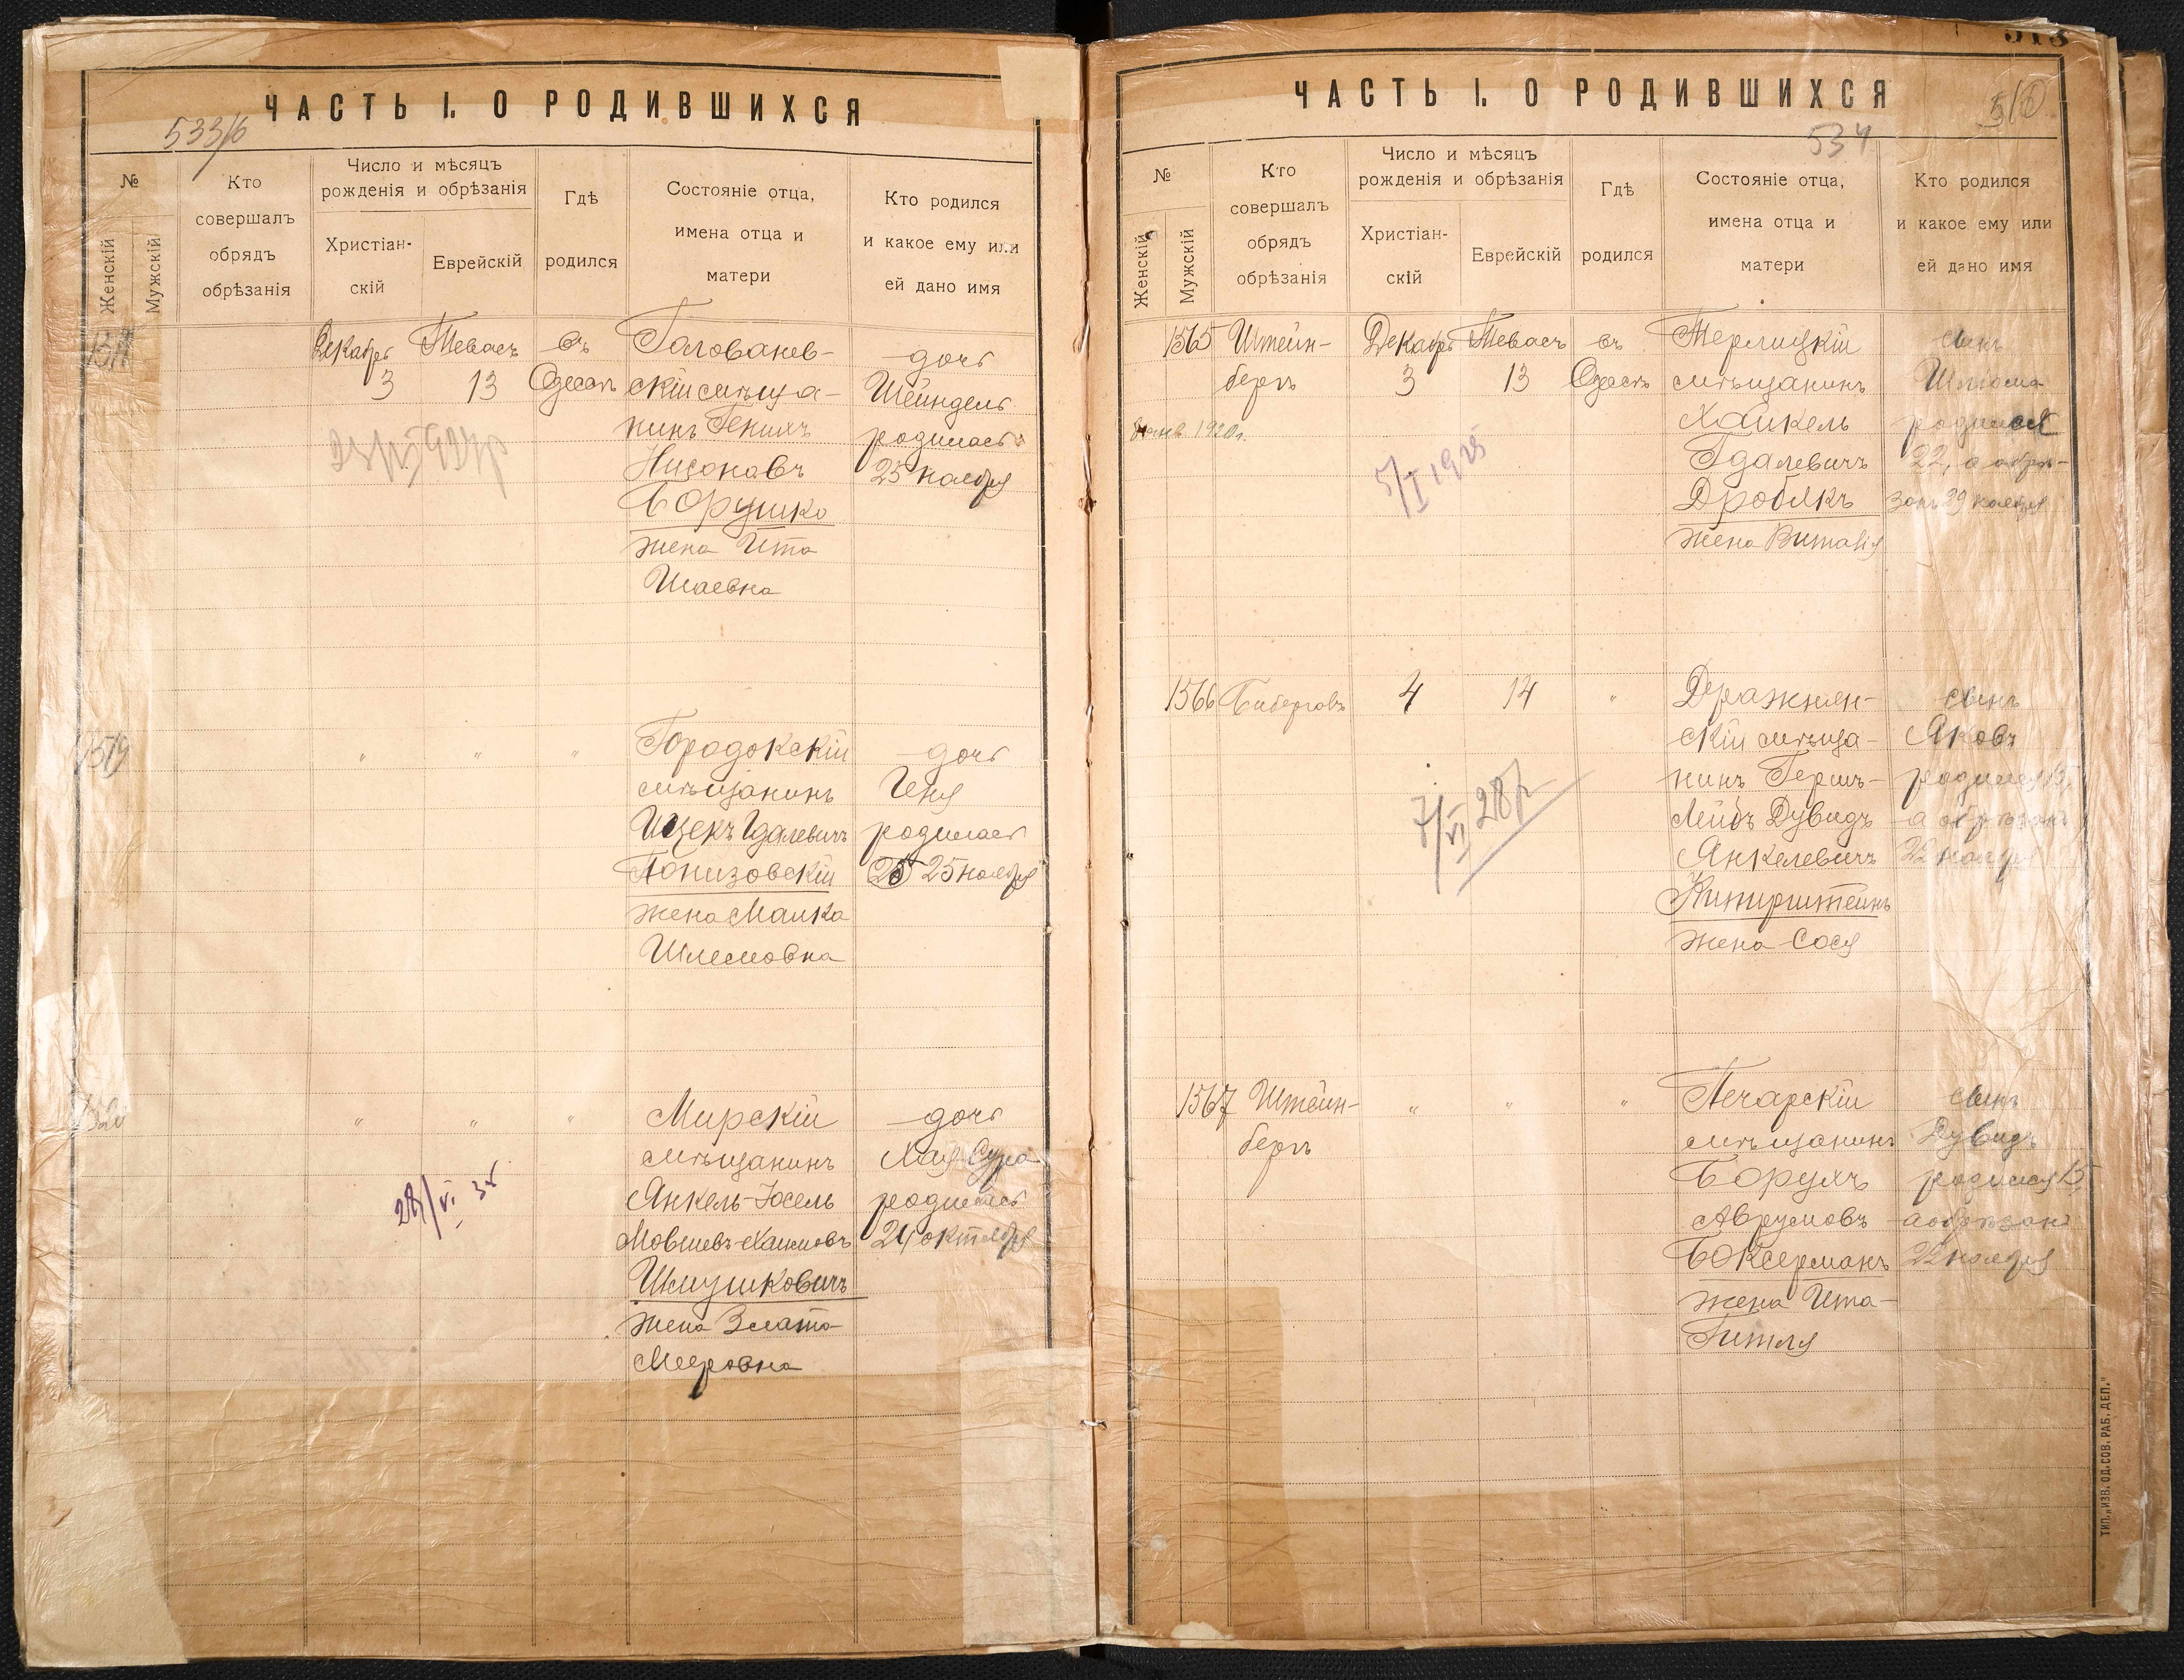 ЧАСТЬ I. О РОДИВШИХСЯ
533/6
№
Женскій
Мужскій
Кто
совершалъ
обрядъ
обрѣзанія
Число и мѣсяцъ
рожденія и обрѣзанія
Христіан-
скій
Еврейскій
Гдѣ
родился
Состояніе отца,
имена отца и
матери
Кто родился
и какое ему или
ей дано имя
Декабря
3
Тевасъ
13
въ
Одессѣ
Голованев-
скій мѣща-
нинъ Генихъ
Нисоновъ
Борушко
жена Ита
Шаевна
дочь
Шейндель
родилась
25 ноября
1519
" " "
Городокскій
мѣщанинъ
Ицекъ Гдалевичъ
Понизовскій
жена Малка
Шлемовна
дочь
Геня
родилась
25 ноября
1520
" " "
28/VI 35
Мирскій
мѣщанинъ
Янкель-Іосель
Мовшевъ-Хаимовъ
Шмушковичъ
жена Злата
Мееровна
дочь
Хая-Сура
родилась
24 октября
ЧАСТЬ I. О РОДИВШИХСЯ
534
№
Женскій
Мужскій
Кто
совершалъ
обрядъ
обрѣзанія
Число и мѣсяцъ
рожденія и обрѣзанія
Христіан-
скій
Еврейскій
Гдѣ
родился
Состояніе отца,
имена отца и
матери
Кто родился
и какое ему или
ей дано имя
1565
Штейн-
бергъ
Декабря
3
Тевасъ
13
въ
Одессѣ
1920г.
5/I 1925
Терлицкій
мѣщанинъ
Хайкель
Гдалевичъ
Дробякъ
жена Виталія
сынъ
Шлиома
родился
22, а обрѣ-
занъ 29 ноября
1566
4
14
"
7/VI 28г
Дражнян-
скій мѣща-
нинъ Герш-
Лейбъ Дувидъ
Янкелевичъ
Китирштейнъ
жена Сося
сынъ
Яковъ
родился 15,
а обрѣзанъ
22 ноября
1567
Штейн-
бергъ
" " "
Печарскій
мѣщанинъ
Борухъ
Аврумовъ
Боксерманъ
жена Ита-
Гитля
сынъ
Дувидъ
родился 15,
а обрѣзанъ
22 ноября
ТИП. „ИЗВ. ОД. СОВ. РАБ. ДЕП."